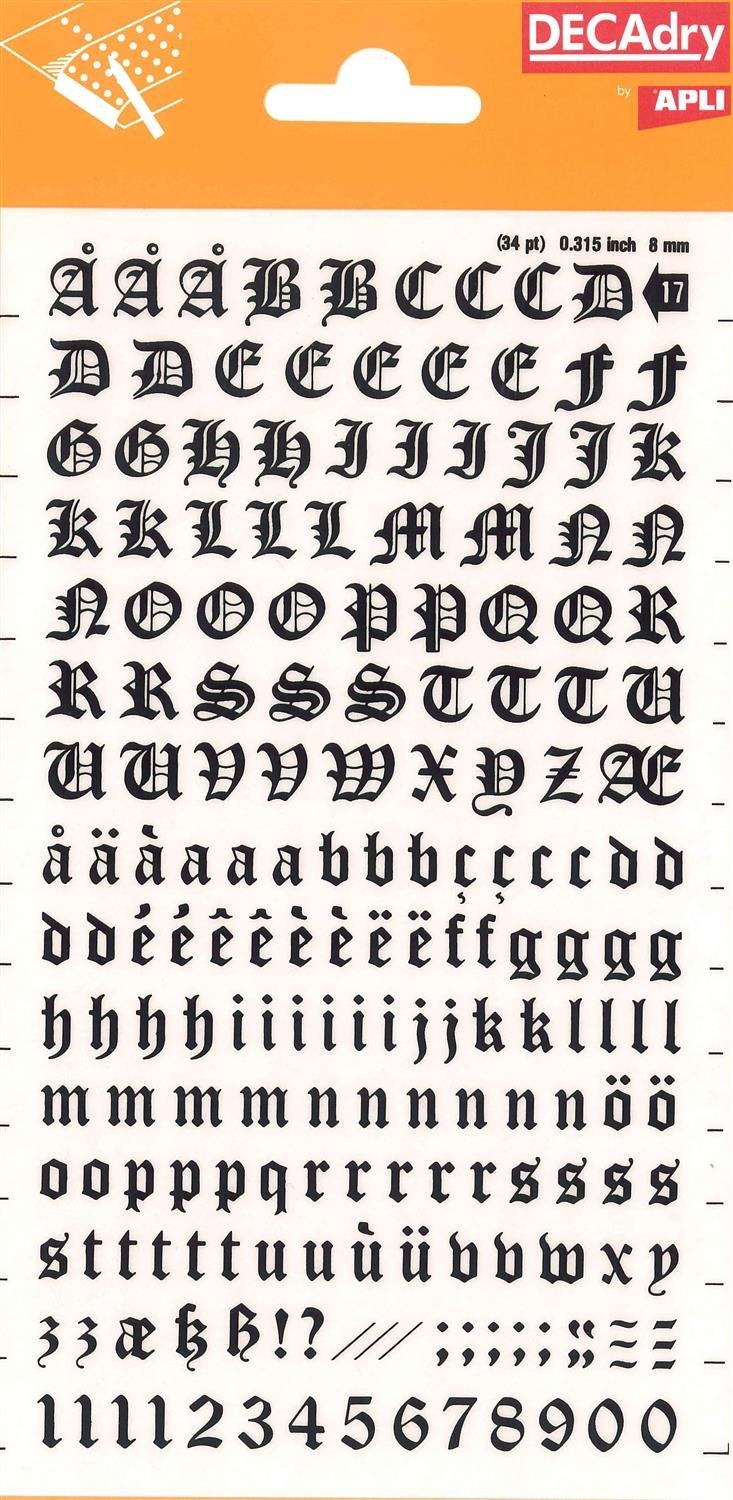 DECAdry
by APLI
(34 pt) 0.315 inch 8 mm
Å Å Å B B C C C D 17
D D E E E E E F F
G G H H I I I J J K
K K L L L M M N N
N O O O P P Q Q R
R R S S S T T T U
U U V V W X Y Z Æ
å ä à a a a a b b b ç ç c c d d
d d é é ê ê è è ë ë f f g g g g
h h h h i i i i i i j j k k l l l l
m m m m n n n n n n ö ö
o o p p p q r r r r r s s s s
s t t t t t u u ù ü v v w x y
z z æ ß ! ? / / / ; ; ; ; ;
1 1 1 1 2 3 4 5 6 7 8 9 0 0